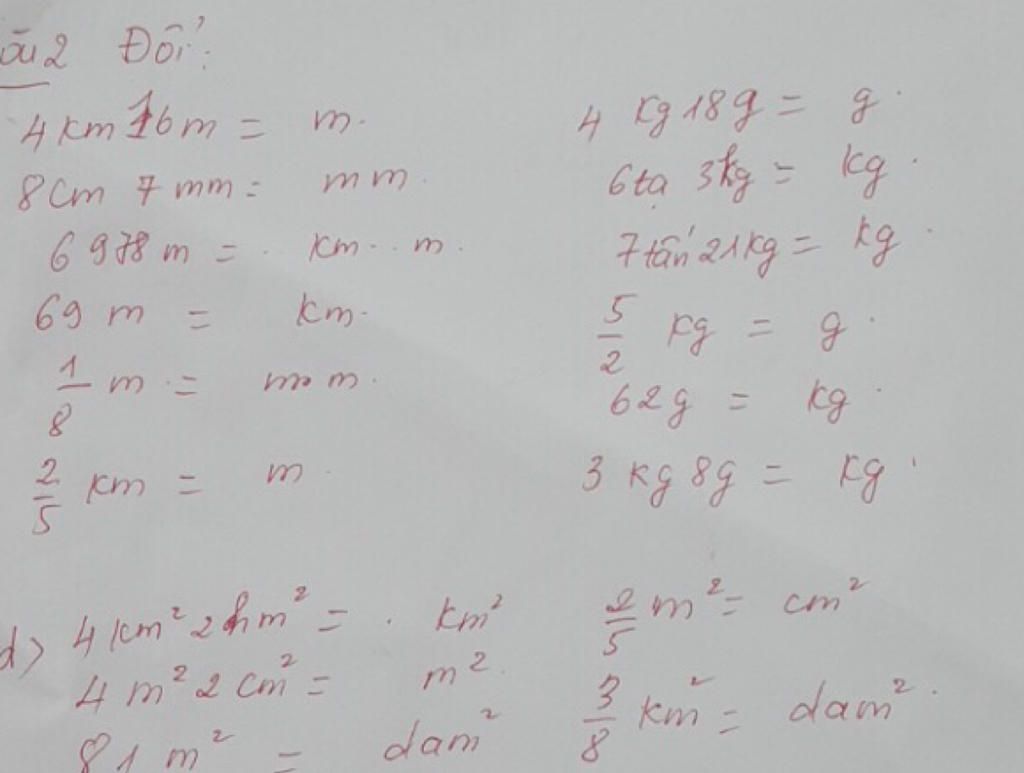 âu 2 Đổi:
4 km 16 m = m.
8 cm 7 mm = mm.
6978 m = . km . . m.
69 m = km.
1/8 m = mm.
2/5 km = m.
4 kg 18 g = g.
6 tạ 3 kg = kg.
7 tấn 21 kg = kg.
5/2 kg = g.
62 g = kg.
3 kg 8 g = kg.
d) 4 km² 2 hm² = . km²
4 m² 2 cm² = m².
81 m² = dam²
2/5 m² = cm²
3/8 km² = dam².